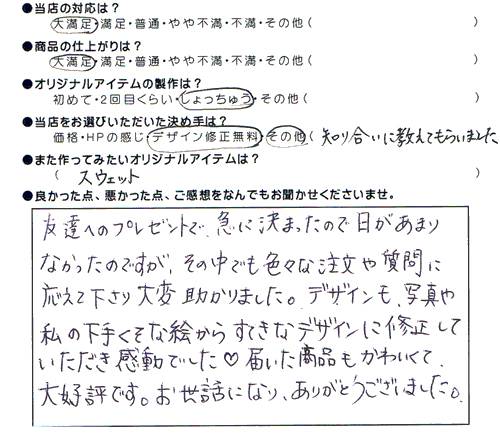 ●当店の対応は？
大満足・満足・普通・やや不満・不満・その他(　)
●商品の仕上がりは？
大満足・満足・普通・やや不満・不満・その他(　)
●オリジナルアイテムの製作は？
初めて・2回目くらい・しょっちゅう・その他(　)
●当店をお選びいただいた決め手は？
価格・HPの感じ・デザイン修正無料・その他(知り合いに教えてもらいました)
●また作ってみたいオリジナルアイテムは？
(スウェット)
●良かった点、悪かった点、ご感想をなんでもお聞かせくださいませ。
友達へのプレゼントで、急に決まったので日があまり
なかったのですが、その中でも色々な注文や質問に
応えて下さり大変助かりました。デザインも、写真や
私の下手くそな絵からすてきなデザインに修正して
いただき感動でした♡届いた商品もかわいくて
大好評です。お世話になり、ありがとうございました。